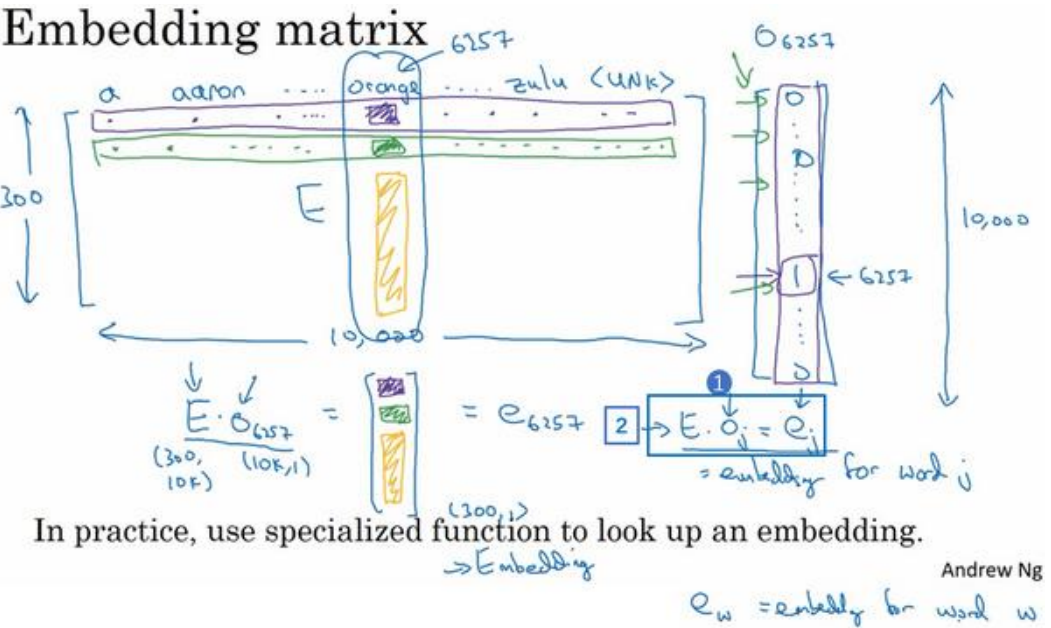 Embedding matrix
6257
O6257
a aaron .... orange .... zulu <UNK>
0
0
300
E
10,000
1 ← 6257
10,000
0
1
E · O6257 = = e6257
2 → E · Oj = ej
(300, 10K) (10K,1)
= embedding for word j
(300,1)
In practice, use specialized function to look up an embedding.
→ Embedding
Andrew Ng
ew = embeddg for word w